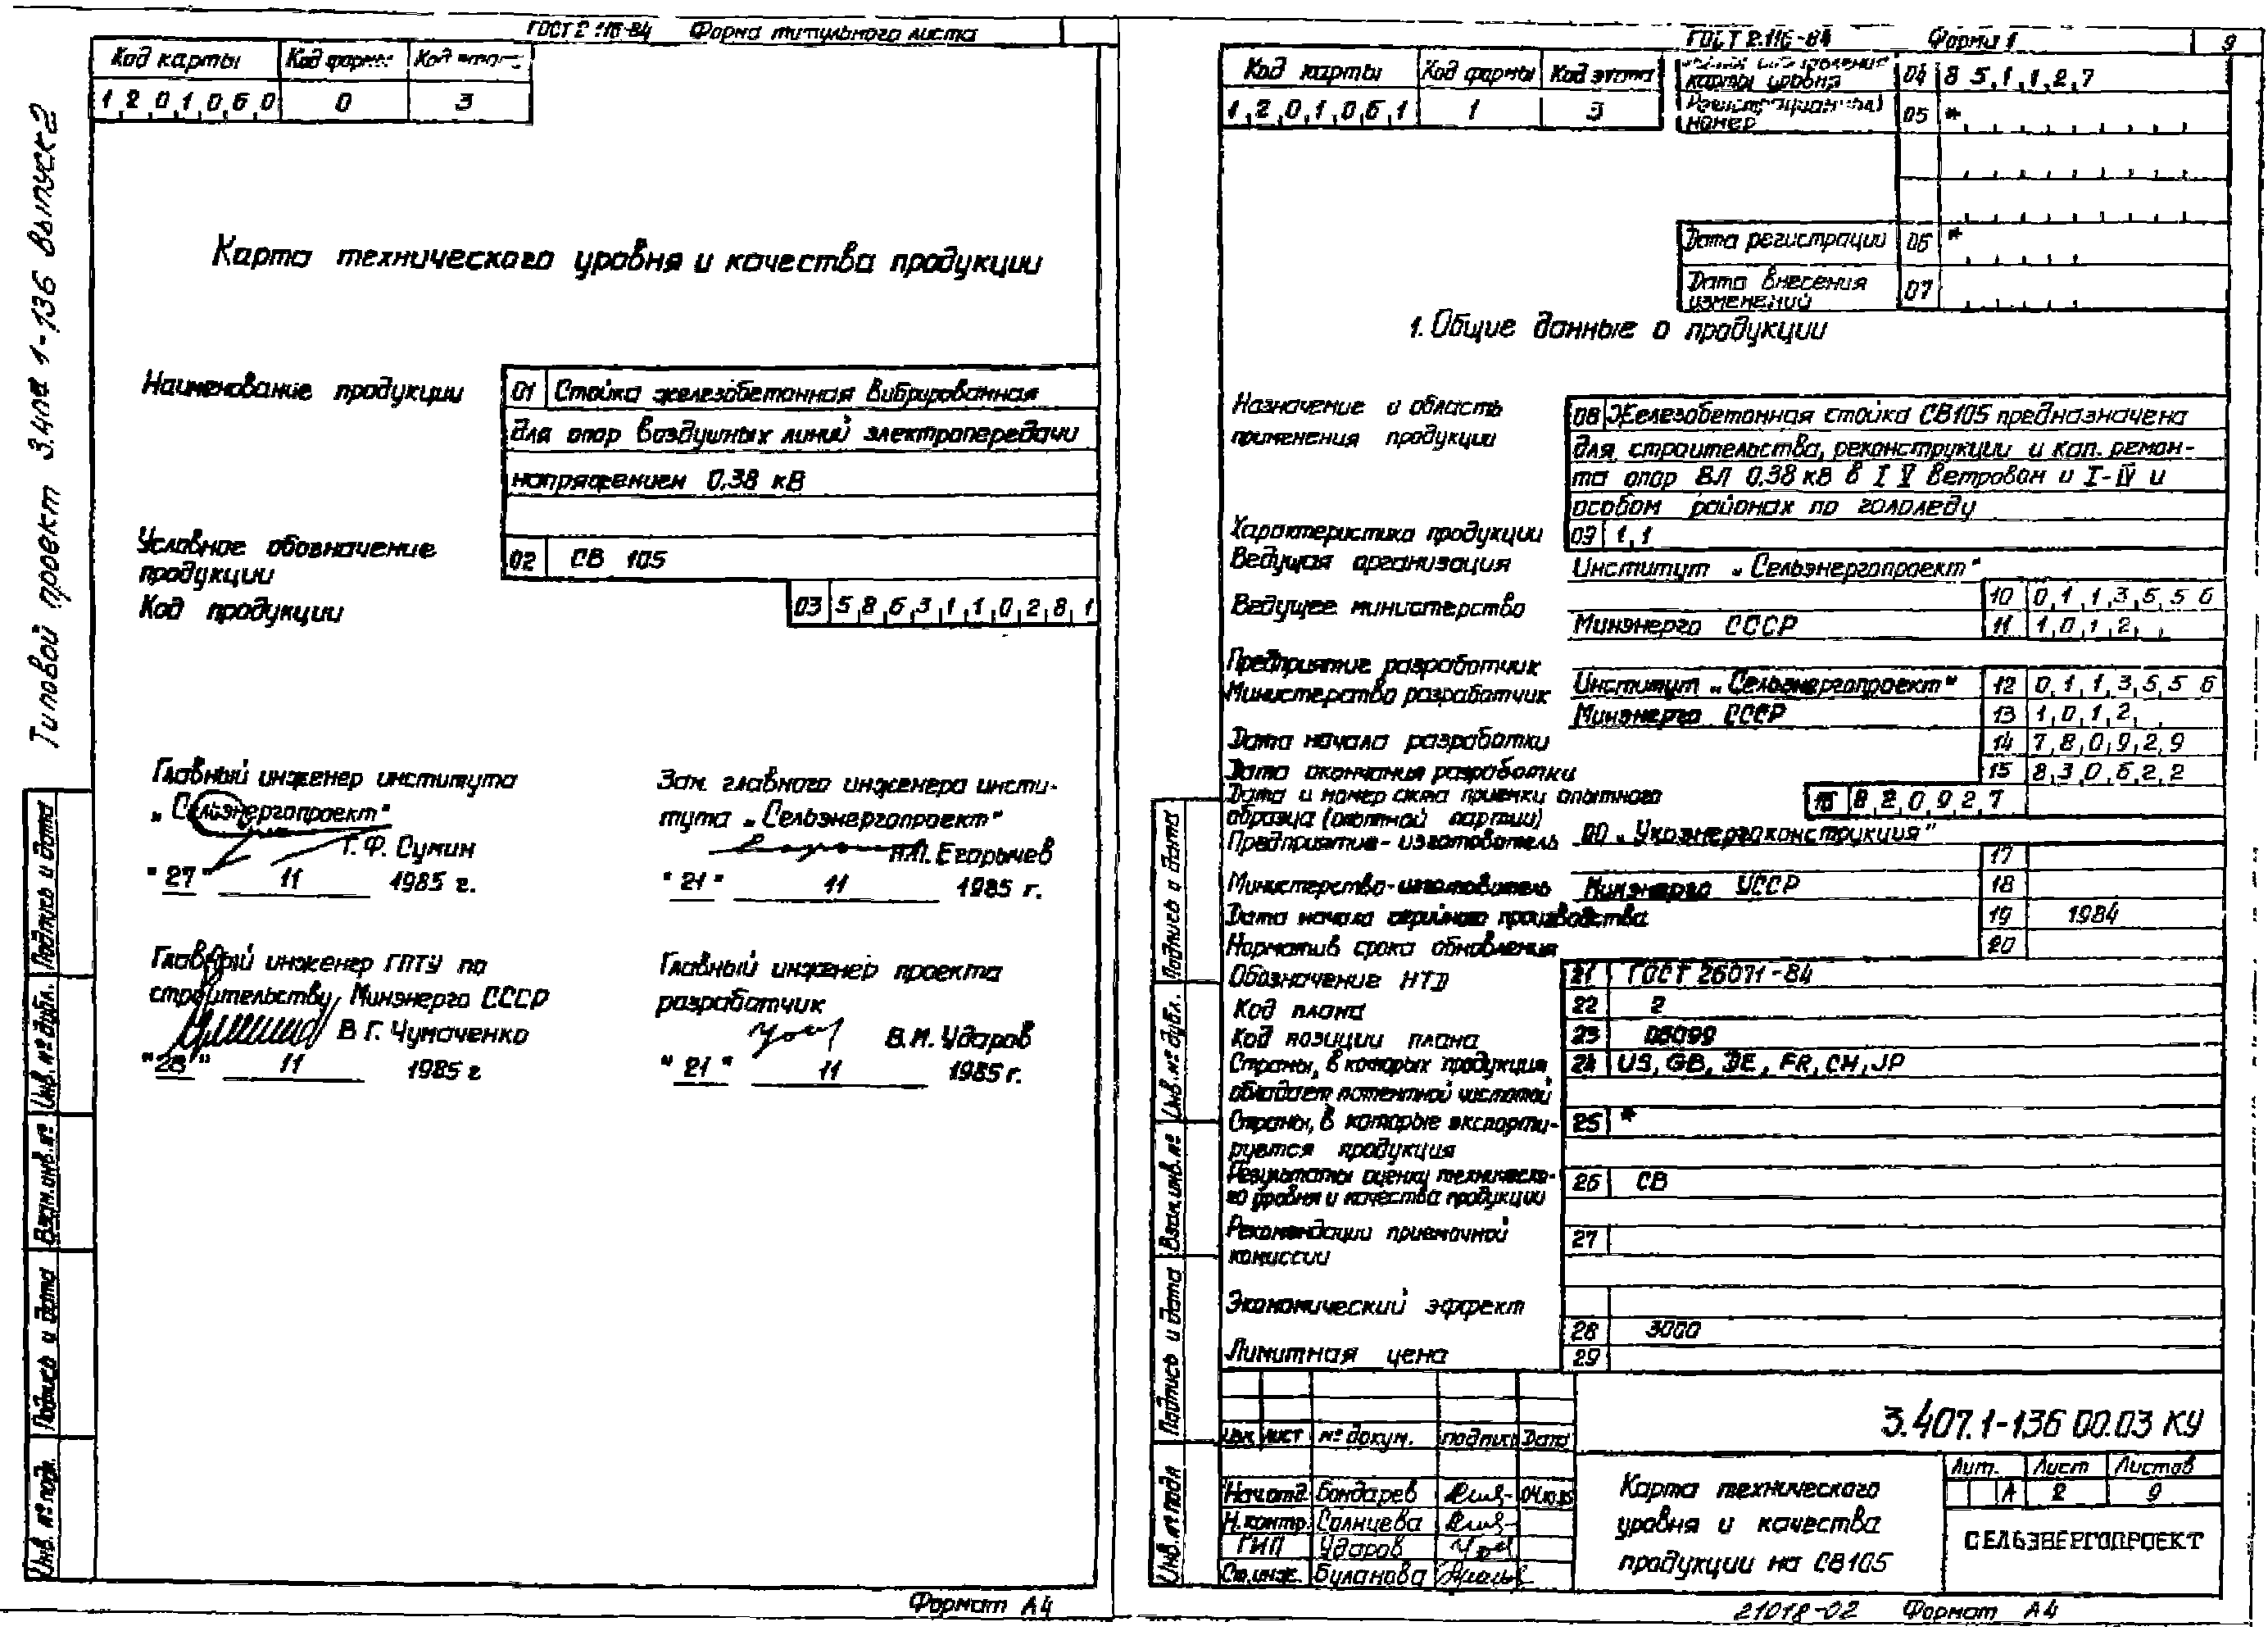 ГОСТ 2.116-84 Форма титульного листа
Код карты Код формы Код этапа
1 2 0 1 0 6 0 0 3
Типовой проект 3.407.1-136 Выпуск 2
Карта технического уровня и качества продукции
Наименование продукции
01 Стойка железобетонная вибрированная
для опор воздушных линий электропередачи
напряжением 0,38 кВ
Условное обозначение
продукции
02 СВ 105
Код продукции
03 5 8 6 3 1 1 0 2 8 1
Главный инженер института
„Сельэнергопроект"
Г.Ф. Сумин
"27" 11 1985 г.
Зам. главного инженера инсти-
тута „Сельэнергопроект"
Егорычев
"21" 11 1985 г.
Главный инженер ГПТУ по
строительству Минэнерго СССР
В.Г. Чумаченко
"28" 11 1985 г
Главный инженер проекта
разработчик
В.И. Ударов
"21" 11 1985 г.
Подпись и дата
Инв. № дубл.
Взам. инв. №
Подпись и дата
Инв. № подл.
Формат А4
ГОСТ 2.116-84 Форма 1 9
Код карты Код формы Код этапа
1,2,0,1,0,6,1 1 3
карты уровня 04 8 5,1,1,2,7
Регистрационный
номер 05 *
Дата регистрации 06 *
Дата внесения
изменений 07
1. Общие данные о продукции
Назначение и область
применения продукции
08 Железобетонная стойка СВ105 предназначена
для строительства, реконструкции и кап. ремон-
та опор ВЛ 0,38 кВ в I V ветровом и I-IV и
особом районах по гололеду
Характеристика продукции 09 1,1
Ведущая организация Институт „Сельэнергопроект"
10 0,1,1,3,5,5 6
Ведущее министерство Минэнерго СССР 11 1,0,1,2
Предприятие разработчик Институт „Сельэнергопроект" 12 0,1,1,3,5,5 6
Министерство разработчик Минэнерго СССР 13 1,0,1,2
Дата начала разработки 14 7,8,0,9,2,9
Дата окончания разработки 15 8,3,0,6,2,2
Дата и номер акта приемки опытного
образца (опытной партии) 16 8,2,0,9,2,7
Предприятие-изготовитель ПО „Укрэнергоконструкция"
17
Министерство-изготовитель Минэнерго УССР 18
Дата начала серийного производства 19 1984
Норматив срока обновления 20
Обозначение НТД 21 ГОСТ 26071-84
Код плана 22 2
Код позиции плана 23 05099
Страны, в которых продукция
обладает патентной чистотой
24 US, GB, DE, FR, CH, JP
Страны, в которые экспорти-
руется продукция
25 *
Результаты оценки техническо-
го уровня и качества продукции
26 СВ
Рекомендации приемочной
комиссии
27
Экономический эффект 28 3000
Лимитная цена 29
Подпись и дата
Инв. № дубл.
Взам. инв. №
Подпись и дата
Инв. № подл
Изм Лист № докум. Подпись Дата
Нач.отд. Бондарев
Н.контр. Солнцева
ГИП Ударов
Ст.инж. Буланова
3.407.1-136 00.03 КУ
Карта технического
уровня и качества
продукции на СВ105
Лит. Лист Листов
А 2 9
СЕЛЬЭНЕРГОПРОЕКТ
21018-02 Формат А4